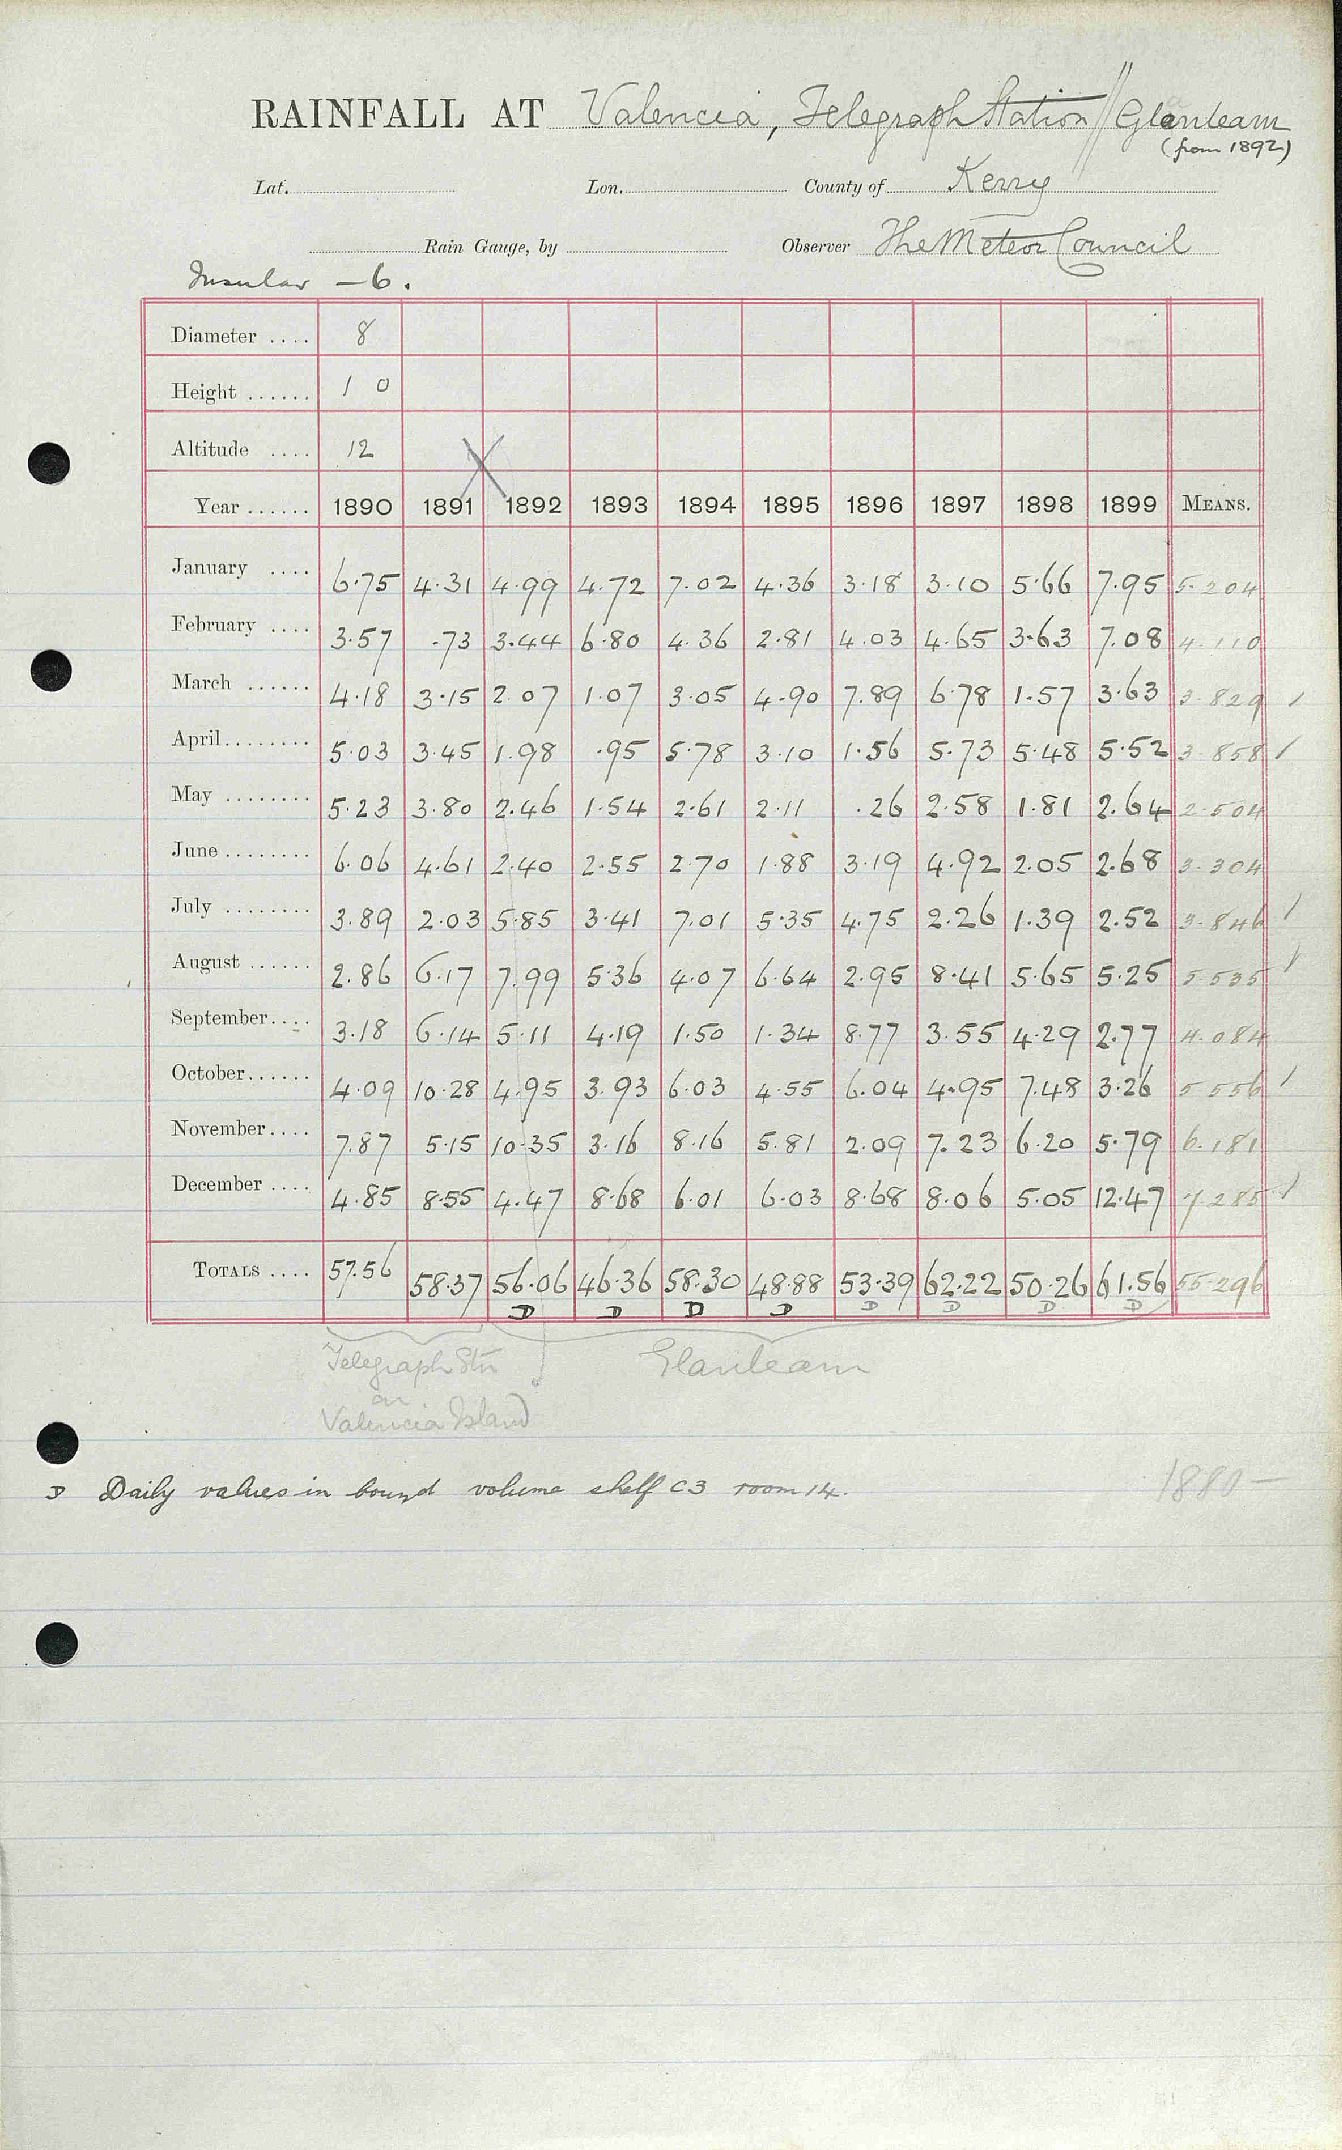 RAINFALL AT Valencia, Telegraph Station // Glanleam
(from 1892)
Lat. Lon. County of Kerry
Rain Gauge, by Observer The Meteor Council
Insular – 6.
Diameter .... 8
Height ...... 1 0
Altitude .... 12
Year ...... 1890 1891 1892 1893 1894 1895 1896 1897 1898 1899 MEANS.
January .... 6.75 4.31 4.99 4.72 7.02 4.36 3.18 3.10 5.66 7.95 5.204
February .... 3.57 .73 3.44 6.80 4.36 2.81 4.03 4.65 3.63 7.08 4.110
March ...... 4.18 3.15 2.07 1.07 3.05 4.90 7.89 6.78 1.57 3.63 3.829 /
April........ 5.03 3.45 1.98 .95 5.78 3.10 1.56 5.73 5.48 5.52 3.858 /
May ........ 5.23 3.80 2.46 1.54 2.61 2.11 .26 2.58 1.81 2.64 2.504
June ........ 6.06 4.61 2.40 2.55 2.70 1.88 3.19 4.92 2.05 2.68 3.304
July ........ 3.89 2.03 5.85 3.41 7.01 5.35 4.75 2.26 1.39 2.52 3.846 /
August ...... 2.86 6.17 7.99 5.36 4.07 6.64 2.95 8.41 5.65 5.25 5.535 /
September.... 3.18 6.14 5.11 4.19 1.50 1.34 8.77 3.55 4.29 2.77 4.084
October...... 4.09 10.28 4.95 3.93 6.03 4.55 6.04 4.95 7.48 3.26 5.556 /
November.... 7.87 5.15 10.35 3.16 8.16 5.81 2.09 7.23 6.20 5.79 6.181
December .... 4.85 8.55 4.47 8.68 6.01 6.03 8.68 8.06 5.05 12.47 7.285 /
TOTALS .... 57.56 58.37 56.06 46.36 58.30 48.88 53.39 62.22 50.26 61.56 55.296
D D D D D D D D
Telegraph Stn Glanleam
on
Valencia Island
D Daily values in bound volume shelf C3 room 14.
1880 –